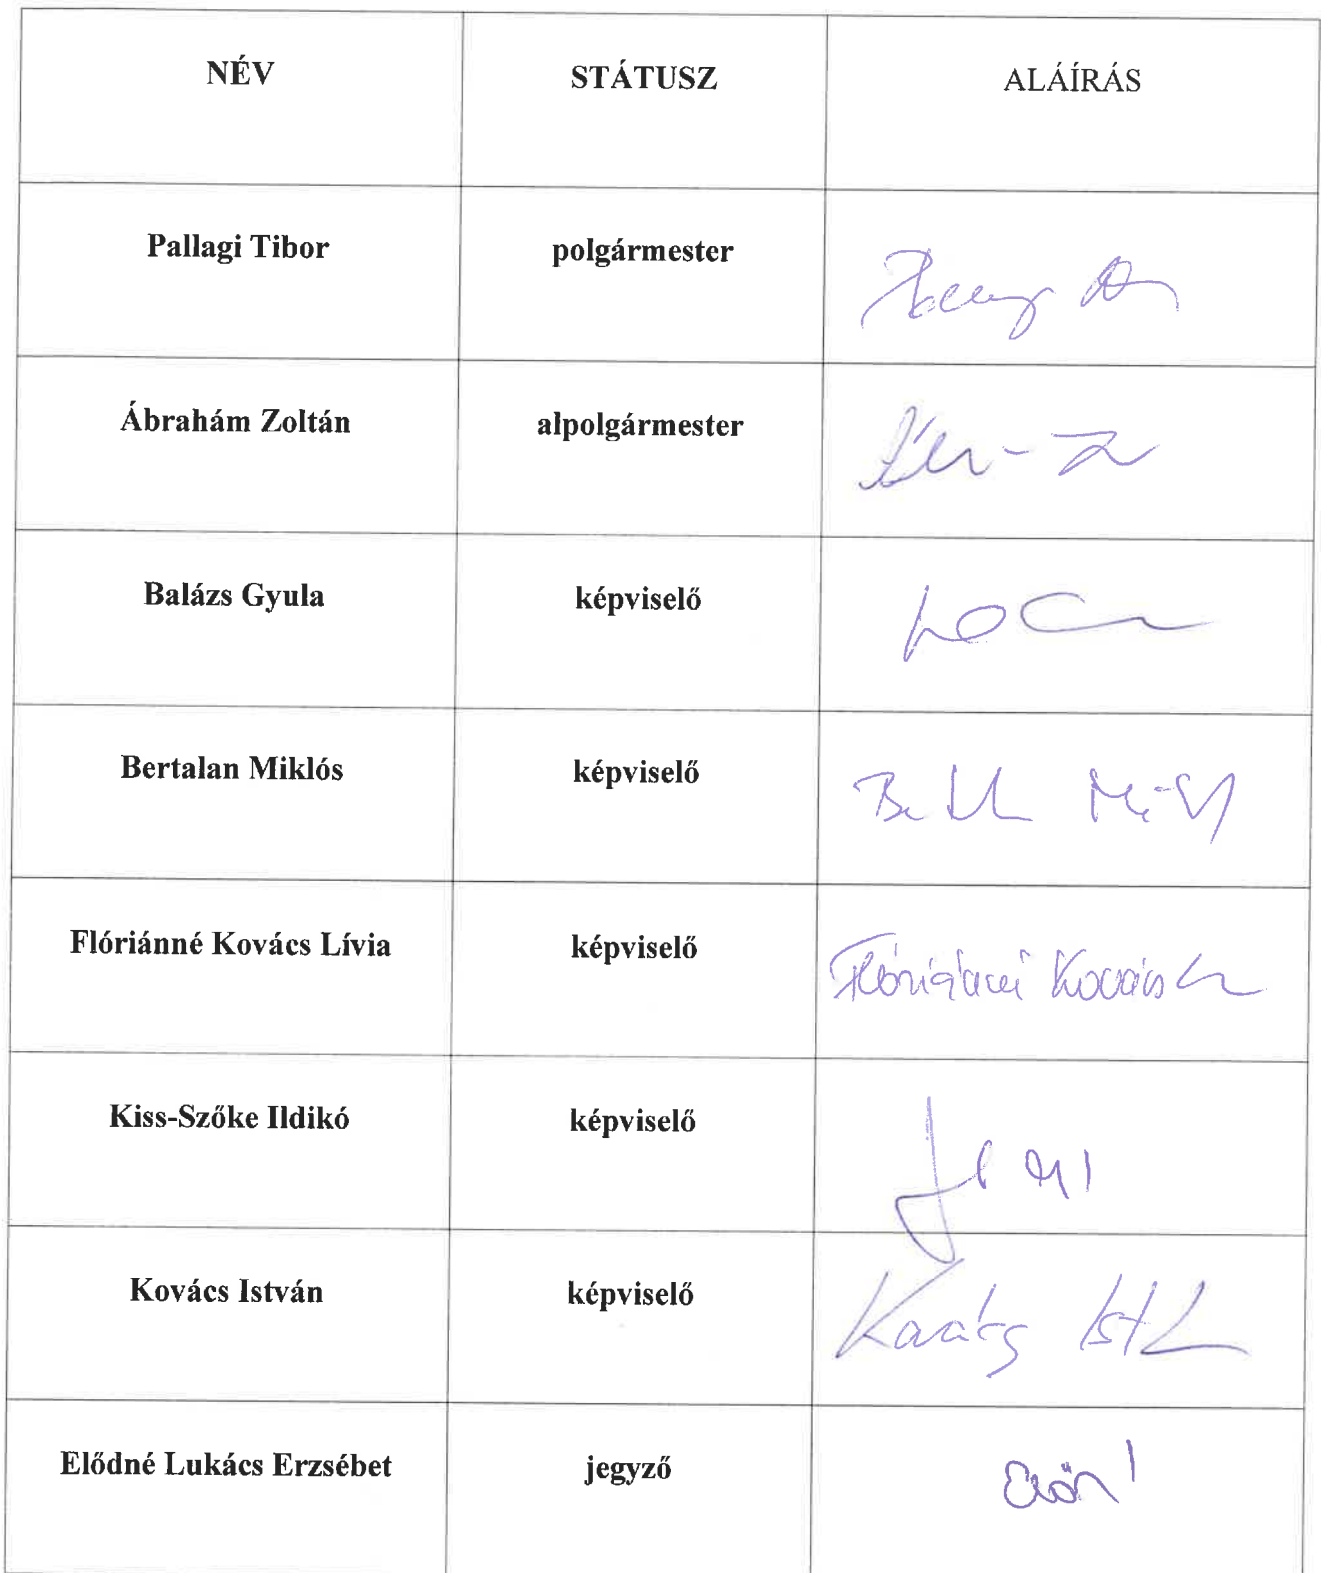 NÉV STÁTUSZ ALÁÍRÁS
Pallagi Tibor polgármester
Ábrahám Zoltán alpolgármester
Balázs Gyula képviselő
Bertalan Miklós képviselő
Flóriánné Kovács Lívia képviselő Flóriánné Kovács L
Kiss-Szőke Ildikó képviselő
Kovács István képviselő Kovács Ist
Elődné Lukács Erzsébet jegyző